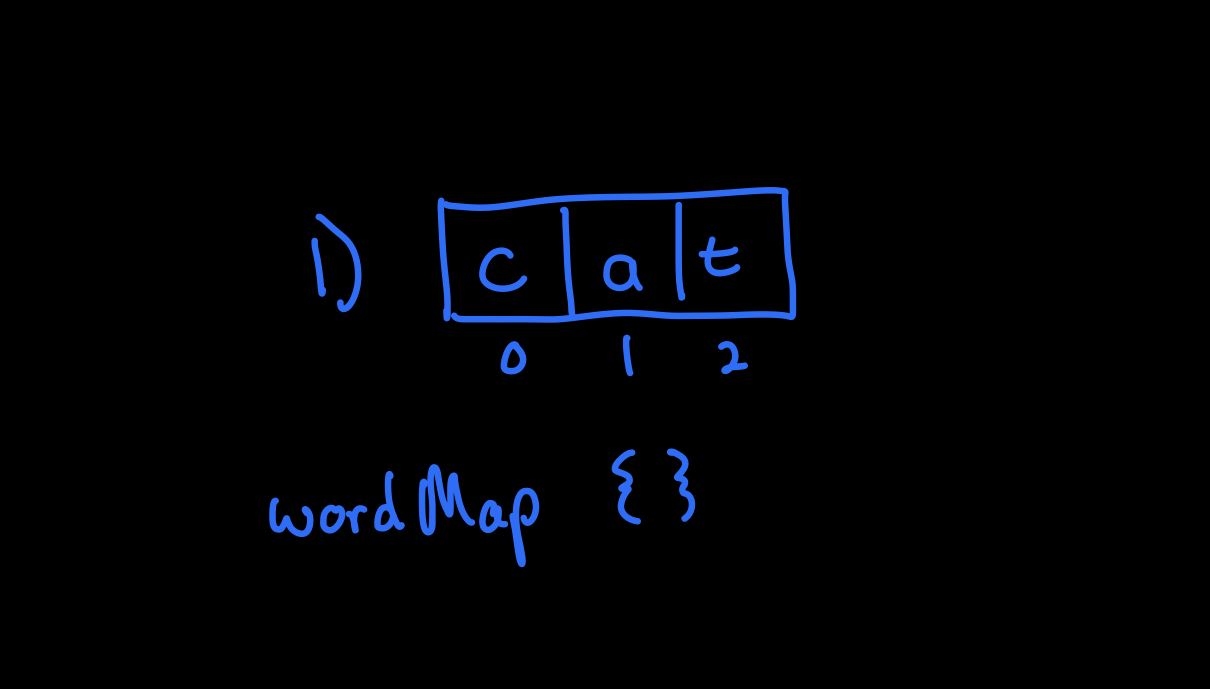 1) c a t
0 1 2
wordMap { }